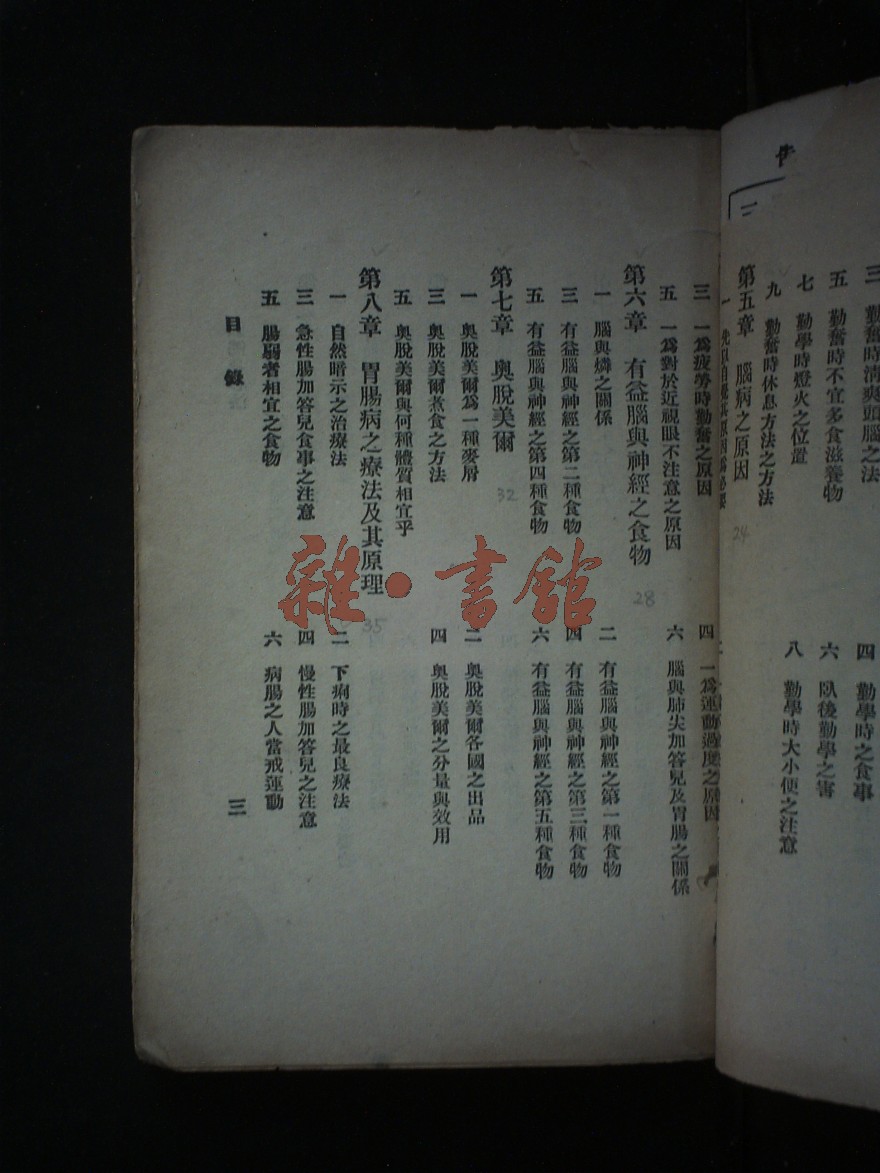 三 勤奮時清爽頭腦之法 四 勤學時之食事
五 勤奮時不宜多食滋養物 六 臥後勤學之害
七 勤學時燈火之位置 八 勤學時大小便之注意
九 勤奮時休息方法之方法
第五章 腦病之原因
24
三 一爲疲勞時勤奮之原因 四 一爲運動過度之原因
五 一爲對於近視眼不注意之原因 六 腦與肺尖加答兒及胃腸之關係
第六章 有益腦與神經之食物
28
一 腦與燐之關係 二 有益腦與神經之第一種食物
三 有益腦與神經之第二種食物 四 有益腦與神經之第三種食物
五 有益腦與神經之第四種食物 六 有益腦與神經之第五種食物
第七章 奧脫美爾
32
一 奧脫美爾爲一種麥屑 二 奧脫美爾各國之出品
三 奧脫美爾煮食之方法 四 奧脫美爾之分量與效用
五 奧脫美爾與何種體質相宜乎
第八章 胃腸病之療法及其原理
35
一 自然暗示之治療法 二 下痢時之最良療法
三 急性腸加答兒食事之注意 四 慢性腸加答兒之注意
五 腸弱者相宜之食物 六 病腸之人當戒運動
目錄 三
雜·書館